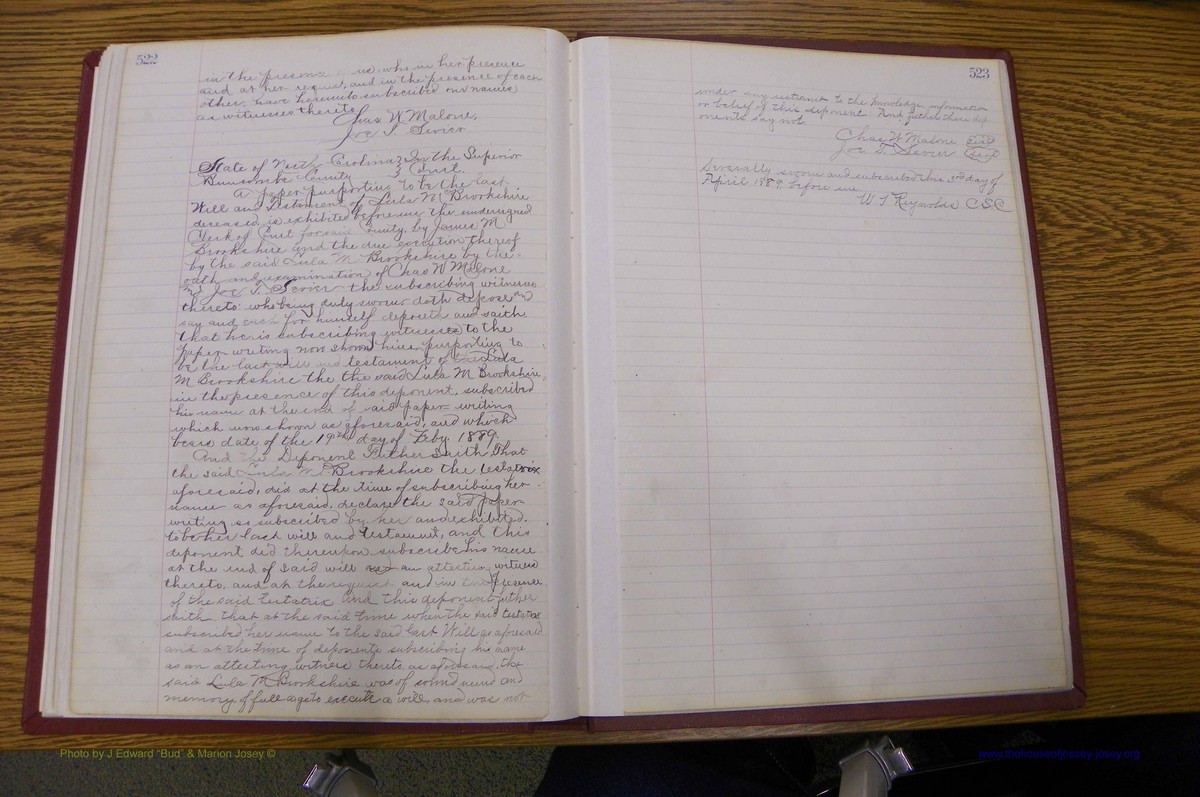 522
in the presence of us, who in her presence
and at her request, and in the presence of each
other, have hereunto subscribed our names
as witnesses thereto
Chas W Malone,
Joe S. Sevier
State of North Carolina } In the Superior
Buncombe County } Court.
A paper purporting to be the last
Will and Testament of Lula M Brookshire
deceased, is exhibited before me the undersigned
Clerk of Court for said County, by James M
Brookshire and the due execution thereof
by the said Lula M Brookshire by the
oath and examination of Chas W Malone
and Joe S. Sevier the subscribing witnesses
thereto: who being duly sworn doth depose and
say and each for himself deposeth and saith
that he is subscribing witnesses to the
paper writing now shown him purporting to
be the last will and testament of Lula
M Brookshire the the said Lula M Brookshire,
in the presence of this deponent, subscribed
his name at the end of said paper writing
which now shown as aforesaid, and which
bears date of the 19th day of Feby. 1889.
And the Deponent Futher Saith, That
the said Lula M Brookshire the testatrix
aforesaid, did at the time of subscribing her
name as aforesaid, declare the said paper
writing so subscribed by her and exhibited,
to be her last will and testament, and this
deponent did thereupon subscribe his name
at the end of said will as an attesting witness
thereto, and at the request and in the presence
of the said testatrix And this deponent futher
saith that at the said time when the said testatrix
subscribed her name to the said last Will as aforesaid
and at the time of deponents subscribing his name
as an attesting witness thereto as aforesaid, the
said Lula M Brookshire was of sound mind and
memory, of full age to execute a will, and was not
523
under any restraint to the knowledge information
or belief of this deponent And futher these dep
onents say not
Chas. W Malone Seal
Joe S. Sevier Seal
Severally sworn and subscribed this 3rd day of
April 1889 before me
W T Reynolds C S C
Photo by J Edward "Bud" & Marion Josey ©
www.thehouseofjoseny-josey.org